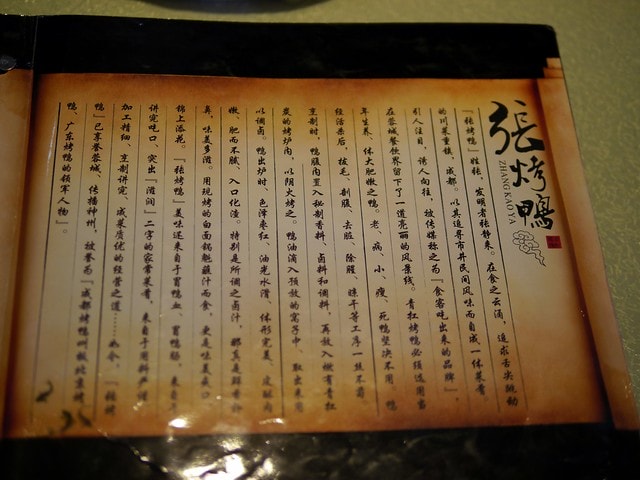 張烤鴨
ZHANG KAO YA
『张烤鸭』姓张，发明者张静来。在食之云涌，追求舌尖跳动
的川菜重镇，成都。以其追寻市井民间风味而自成一体菜肴
引人注目，诱人向往，被传媒称之为『食客吃出来的品牌』。
在蓉城餐饮界留下了一道亮丽的风景线。青杠烤鸭必须选用当
年生养、体大肥嫩之鸭。老、病、小、瘦、死鸭坚决不用。鸭
经活杀后，拔毛、剖腹、去脏、除腥、晾干等工序一丝不苟。
烹制时，鸭腹内置入秘制香料、卤料和调料，再放入燃有青杠
炭的烤炉内，以阴火烤之。鸭油滴入预放的窝子中，取出来用
以调卤。鸭出炉时，色泽枣红、油光水滑、体形完美、皮酥肉
嫩、肥而不腻、入口化渣。特别是所调之卤汁，那真是鲜香扑
鼻，味美多滋。用现烤的白面锅魁蘸汁而食，更是味美爽口，
锦上添花。『张烤鸭』美味还来自于冒鸭血、冒鸭肠，来自于
讲究吃口、突出『滋润』二字的家常菜肴，来自于用料严谨、
加工精细、烹制讲究、成菜质优的经营之道……如今，『张烤
鸭』已享誉蓉城，传播神州，被誉为『成都烤鸭叫板北京烤
鸭、广东烤鸭的领军人物』。